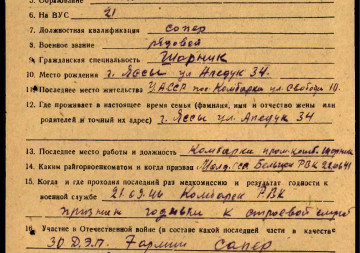 5. Образование
6. На ВУС 21
7. Должностная квалификация сапер
8. Военное звание рядовой
9. Гражданская специальность Шорник
10. Место рождения г. Яссы ул Апедук 34.
11. Последнее место жительства УАССР пос Камбарка ул. Свободы 10.
12. Где проживает в настоящее время семья (фамилия, имя и отчество жены или
родителей и точный их адрес) г. Яссы ул Апедук 34
13. Последнее место работы и должность Камбарки промкомб. Шорник
14. Каким райгорвоенкоматом и когда призван Молд. ССР РВК 22.06.41
15. Когда и где проходил последний раз медкомиссию и результат годности к
военной службе 21.03.46 Камбарск РВК
признан годным к строевой службе
16. Участие в Отечественной войне (в составе какой последней части и в качестве
сапер